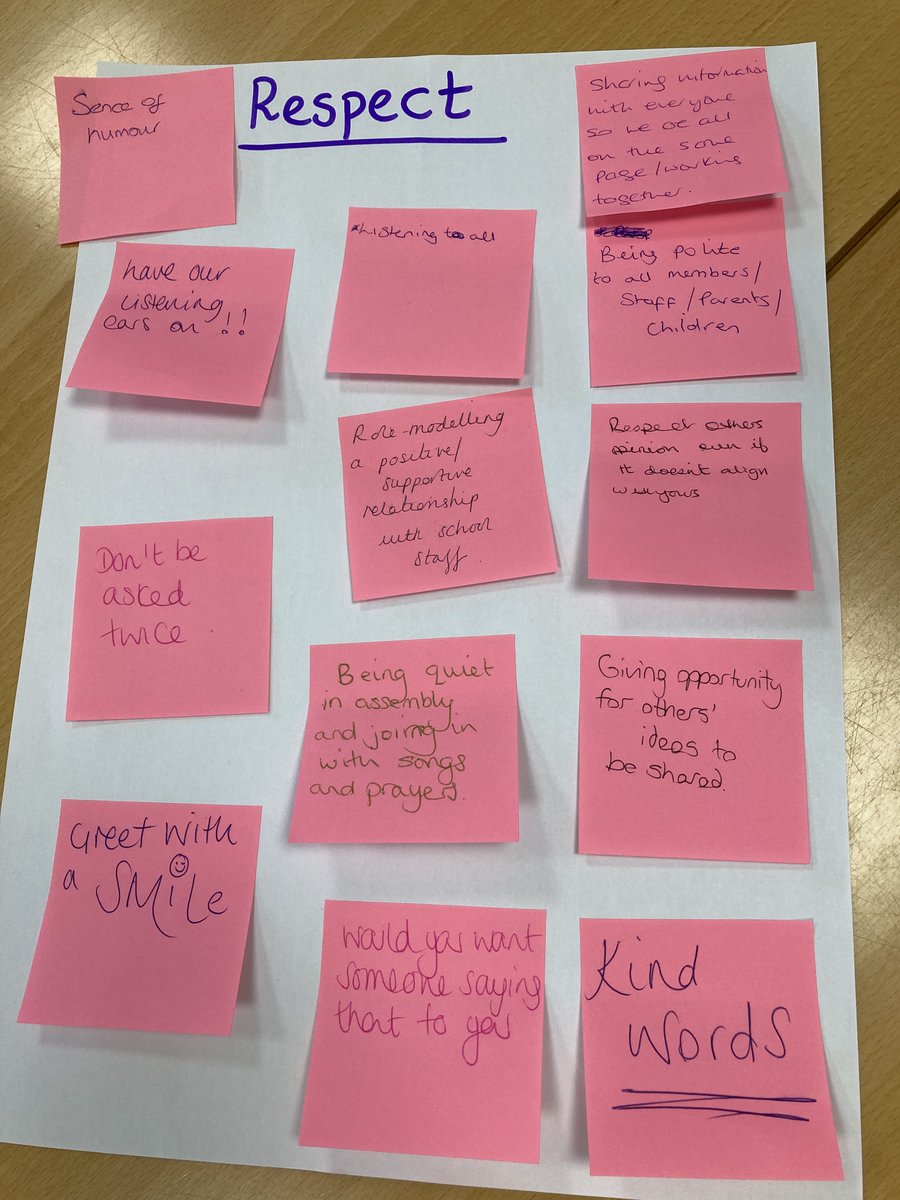 Respect
Sence of
humour
Sharing information
with everyone
so we are all
on the same
page/working
together.
have our
listening
ears on !!
*Listening to all
Being polite
to all members/
Staff/Parents/
Children
Role-modelling
a positive/
supportive
relationship
with school
staff.
Respect others
opinion even if
it doesn't align
with yours
Don't be
asked
twice.
Being quiet
in assembly
and joining in
with songs
and prayers.
Giving opportunity
for others'
ideas to
be shared.
Greet with
a SMiLe
would you want
someone saying
that to you
Kind
words